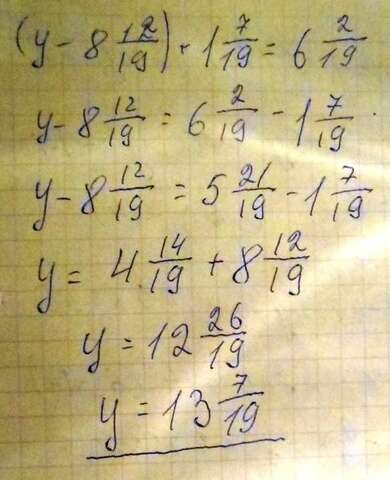 (y - 8 12/19) + 1 7/19 = 6 2/19
y - 8 12/19 = 6 2/19 - 1 7/19
y - 8 12/19 = 5 21/19 - 1 7/19
y = 4 14/19 + 8 12/19
y = 12 26/19
y = 13 7/19